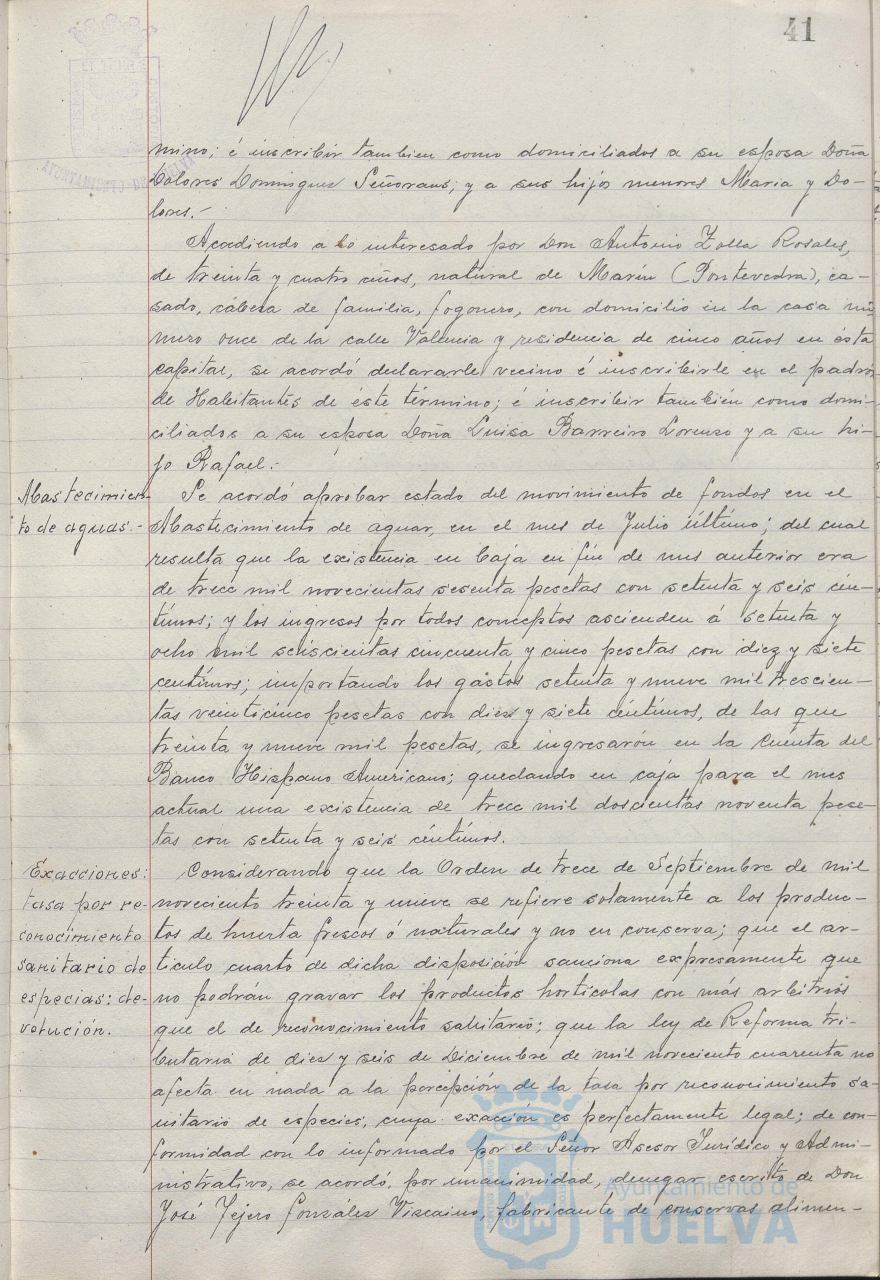 41
mino; é inscribir tambien como domiciliados a su esposa Doña
Dolores Dominguez Señorans; y a sus hijos menores Maria y Do-
lores.-
Accediendo a lo interesado por Don Antonio Zolla Rosales,
de treinta y cuatro años, natural de Marín (Pontevedra), ca-
sado, cabeza de familia, fogonero, con domicilio en la casa nú-
mero once de la calle Valencia y residencia de cinco años en ésta
capital, se acordó declararle vecino é inscribirle en el padrón
de Habitantes de éste término; é inscribir también como domi-
ciliados a su esposa Doña Luisa Barreiro Lorenzo y a su hi-
jo Rafael.-
Abastecimien-
to de aguas.-
Se acordó aprobar estado del movimiento de fondos en el
Abastecimiento de aguas, en el mes de Julio último; del cual
resulta que la existencia en Caja en fin de mes anterior era
de trece mil novecientas sesenta pesetas con setenta y seis cén-
timos; y los ingresos por todos conceptos ascienden á setenta y
ocho mil seiscientas cincuenta y cinco pesetas con diez y siete
centimos; importando los gastos setenta y nueve mil trescien-
tas veinticinco pesetas con diez y siete céntimos, de las que
treinta y nueve mil pesetas, se ingresarón en la Cuenta del
Banco Hispano Americano; quedando en caja para el mes
actual una existencia de trece mil doscientas noventa pese-
tas con setenta y seis céntimos.
Exacciones:
tasa por re-
conocimiento
sanitario de
especias: de-
volución.
Considerando que la Orden de trece de Septiembre de mil
noveciento treinta y nueve se refiere solamente a los produc-
tos de huerta frescos ó naturales y no en conserva; que el ar-
ticulo cuarto de dicha disposición sanciona expresamente que
no podrán gravar los productos horticolas con más arbitrios
que el de reconocimiento sanitario; que la ley de Reforma tri-
butaria de diez y seis de Diciembre de mil noveciento cuarenta no
afecta en nada a la percepción de la tasa por reconocimiento sa-
nitario de especies, cuya exacción es perfectamente legal; de con-
formidad con lo informado por el Señor Asesor Jurídico y Admi-
nistrativo, se acordó, por unanimidad, denegar escrito de Don
José Tejero González Vizcaino, fabricante de conservas alimen-
Ayuntamiento de
HUELVA